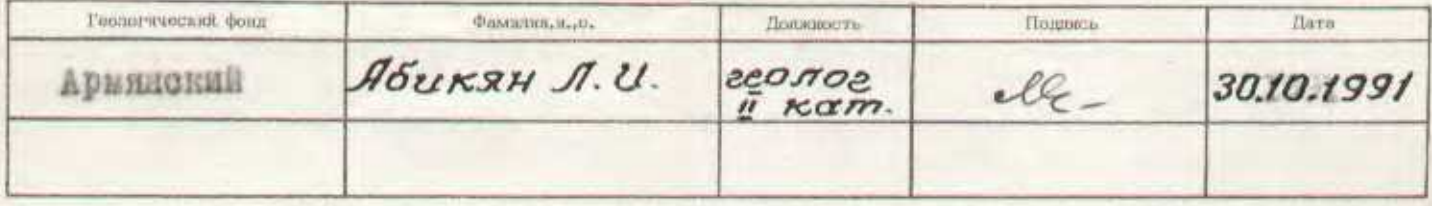 Геологический фонд Фамилия,и.,о. Должность Подпись Дата
Армянский Абикян Л.И. геолог II кат. 30.10.1991